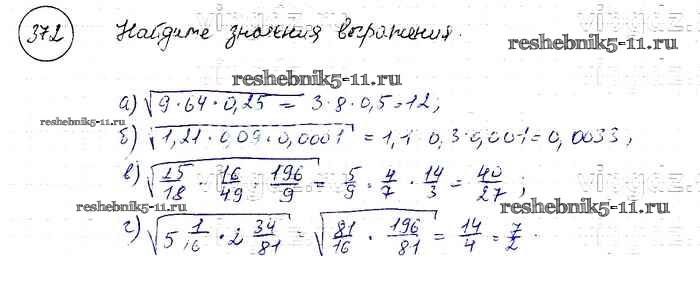 372 Найдите значния выражения.
reshebnik5-11.ru
reshebnik5-11.ru
а) √9·64·0,25 = 3·8·0,5=12;
reshebnik5-11.ru
б) √1,21·0,09·0,0001 = 1,1·0,3·0,001=0,0033;
в) √25/18 · 16/49 · 196/9 = 5/9 · 4/7 · 14/3 = 40/27;
reshebnik5-11.ru
reshebnik5-11.ru
г) √5 1/16 · 2 34/81 = √81/16 · 196/81 = 14/4 = 7/2.